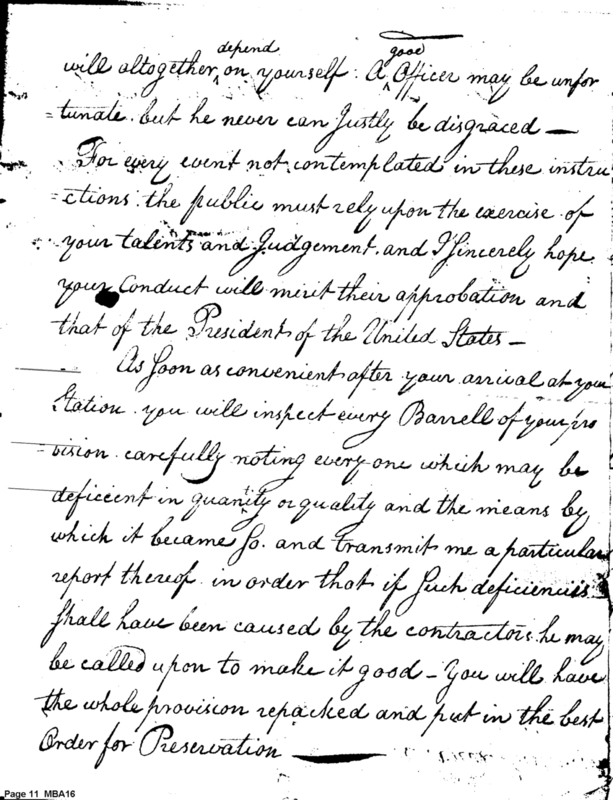 will altogether depend on yourself. A good Officer may be unfor
=tunate. but he never can Justly be disgraced —
For every event not contemplated in these instru
ctions the public must rely upon the exercise of
your talents and Judgement. and I Sincerely hope
your Conduct will mirit their approbation and
that of the President of the United States —
As Soon as convenient after your arrival at your
Station you will inspect every Barrell of your pro
=vision carefully noting every one which may be
deficient in quantity or quality and the means by
which it became So. and transmit me a particular
report thereof in order that if Such deficiencies
Shall have been caused by the contractors he may
be called upon to make it good — You will have
the whole provision repacked and put in the best
Order for Preservation —
Page 11 MBA16